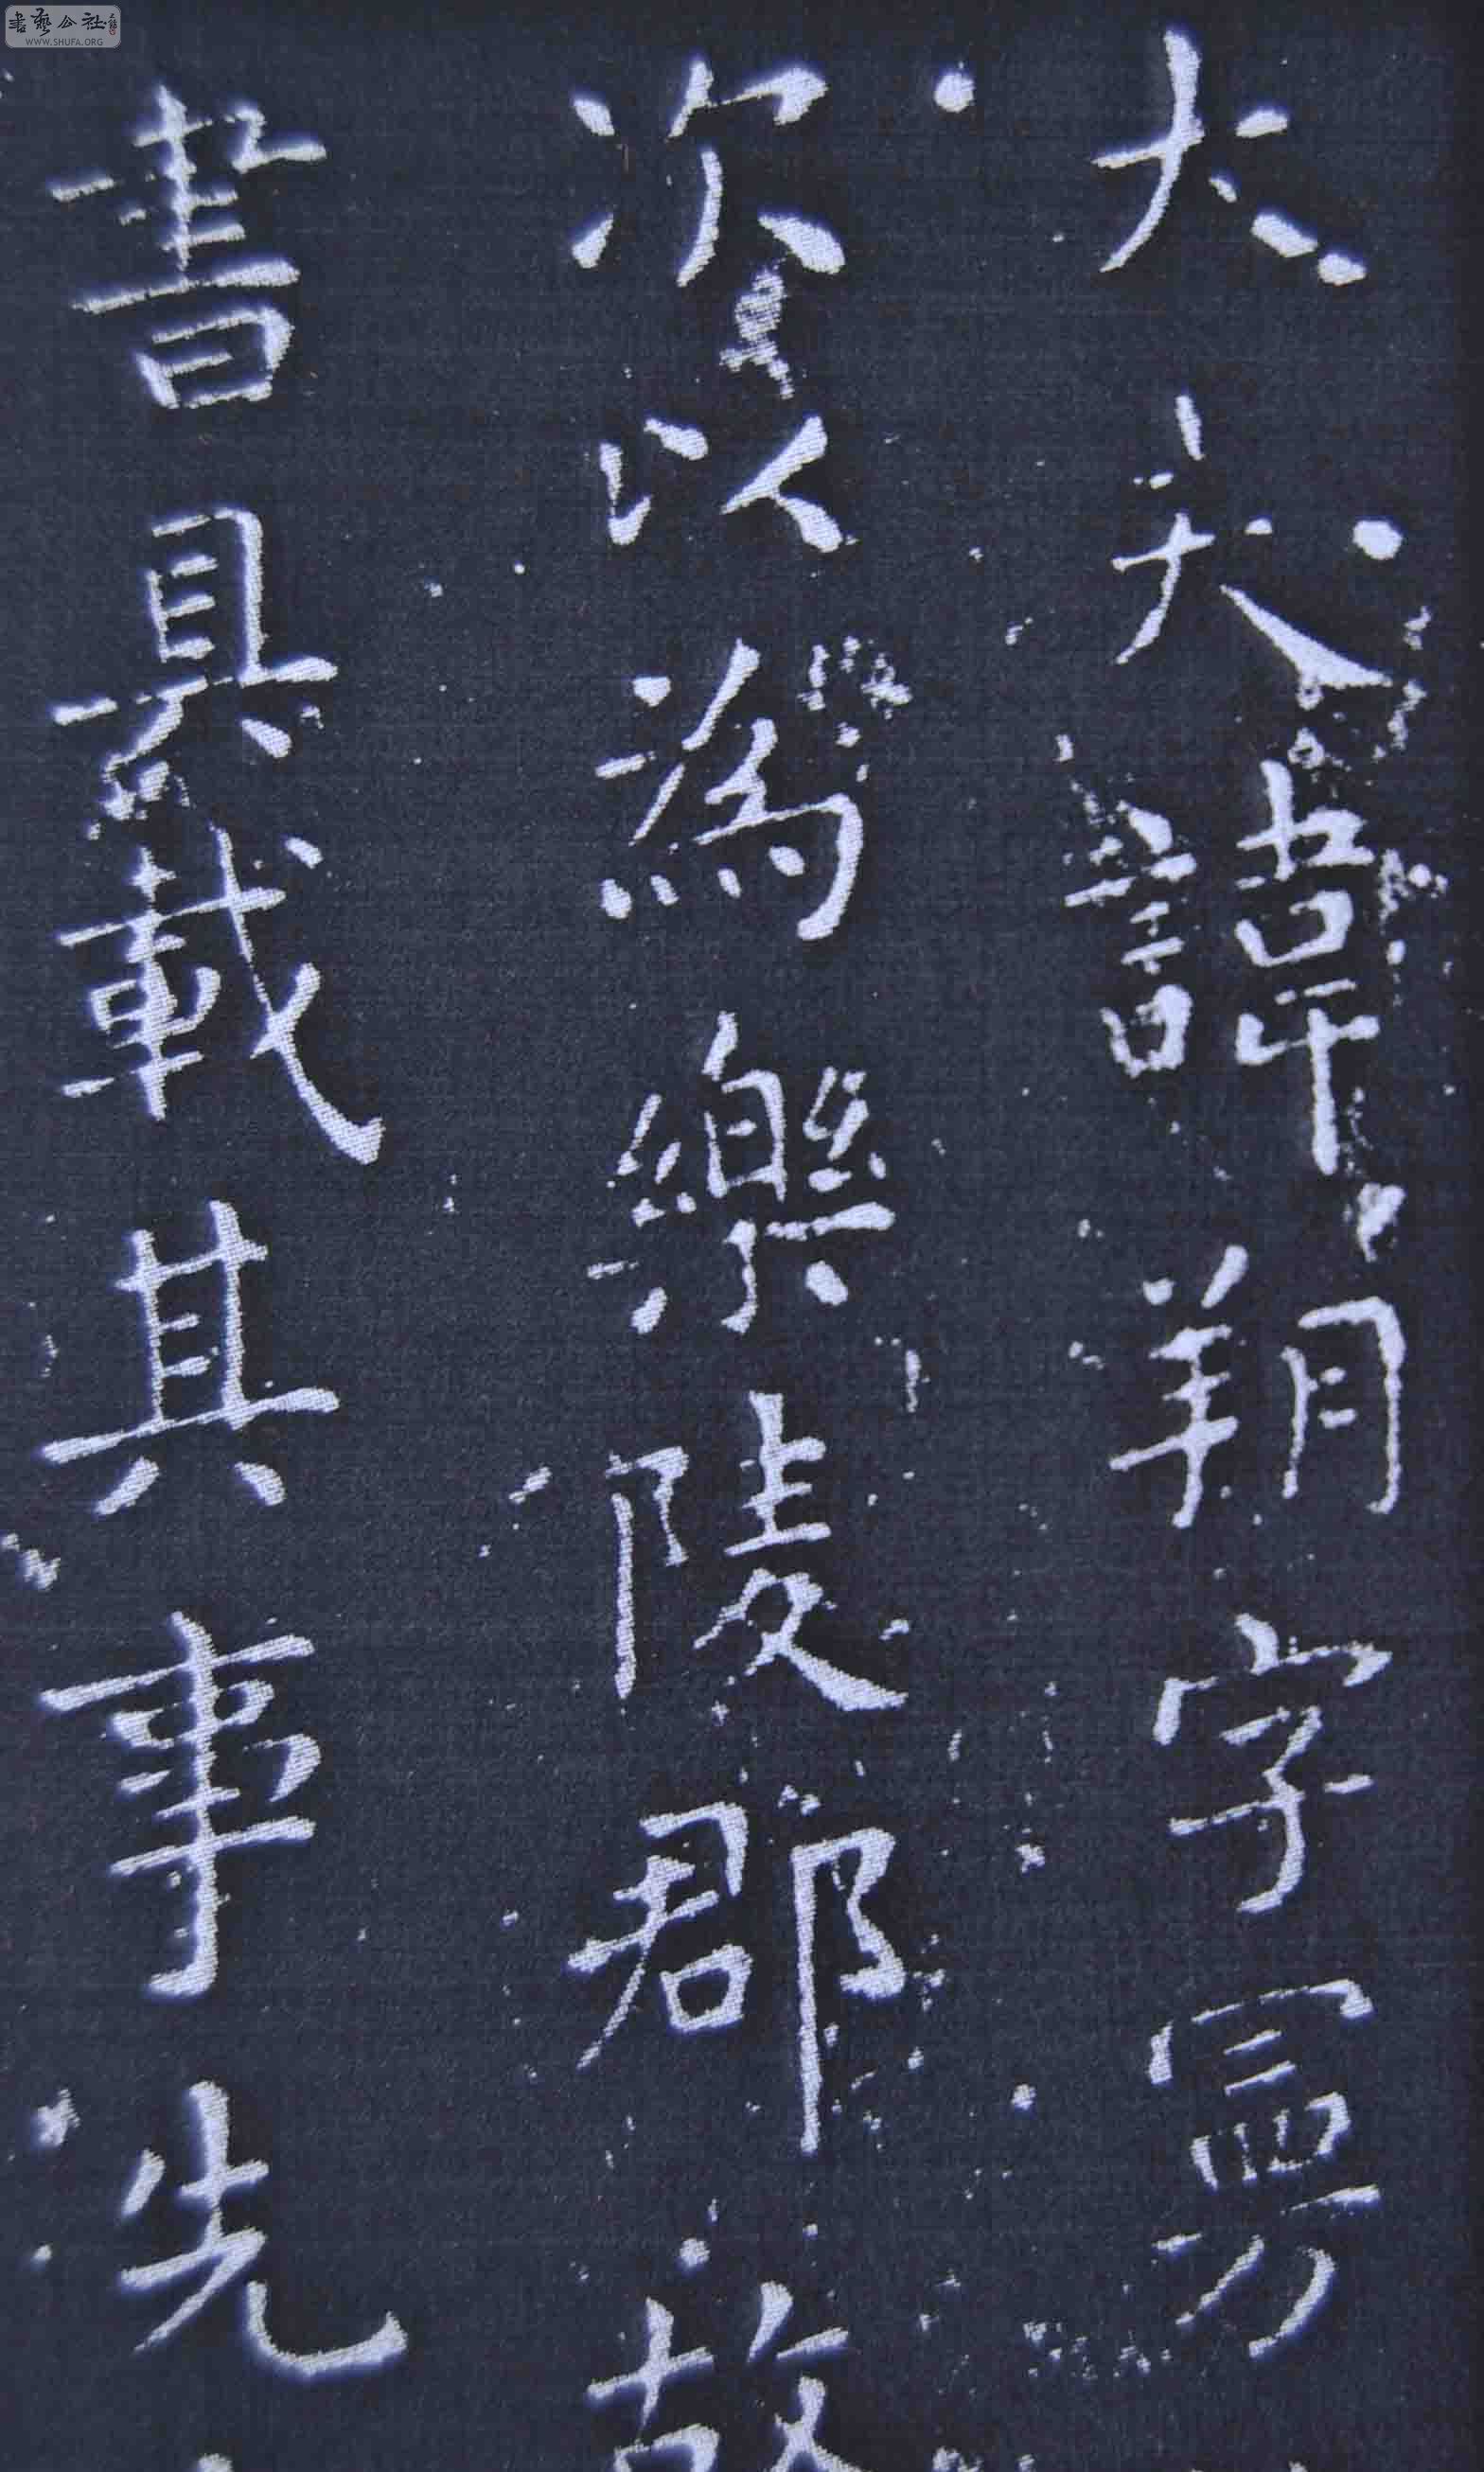 大夫諱朔字曼
次以為樂陵郡故
書具載其事先
書藝公社
WWW.SHUFA.ORG